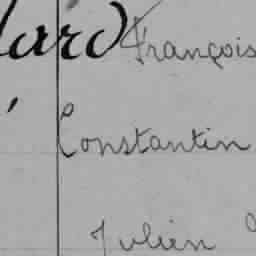 lard François
Constantin
Julien